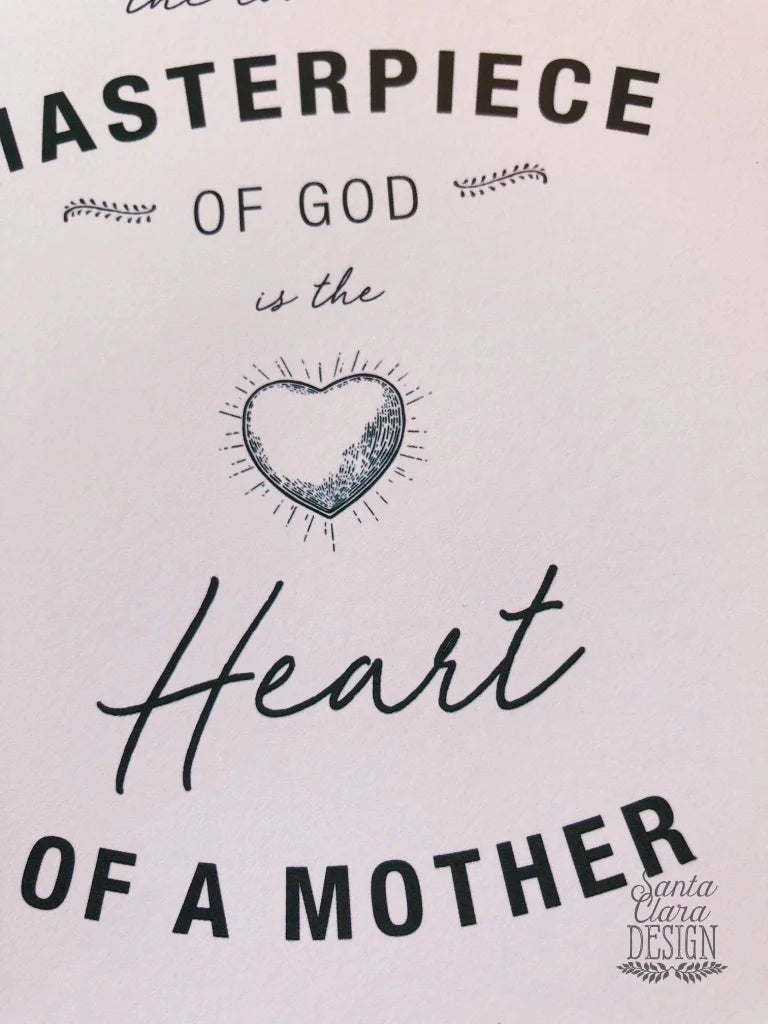 the
MASTERPIECE
OF GOD
is the
Heart
OF A MOTHER
Santa
Clara
DESIGN